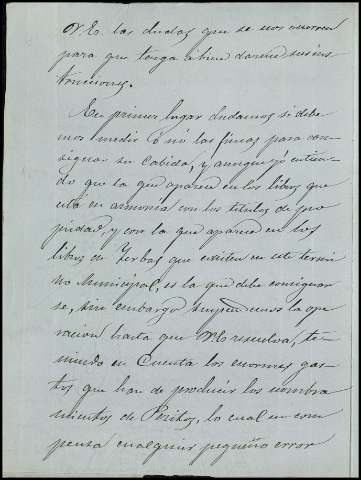 V.E. las dudas que se nos ocurren
para que tenga á bien darme sus ins
trucciones.
En primer lugar dudamos si debe
mos medir ó nó las fincas para con
signar su Cabida, y aunque yó entien
do que la que aparece en los libros que
está en armonia con los titulos de pro
piedad, y con la que aparece en los
libros de Yerbas que existen en este termi
no Municipal, es la que debe consignar
se, sin embargo suspendemos la ope
racion hasta que V.E. resuelva, te
niendo en Cuenta los enormes gas
tos que han de producir los nombra
mientos de Peritos, lo cual en com
pensa cualquier pequeño error